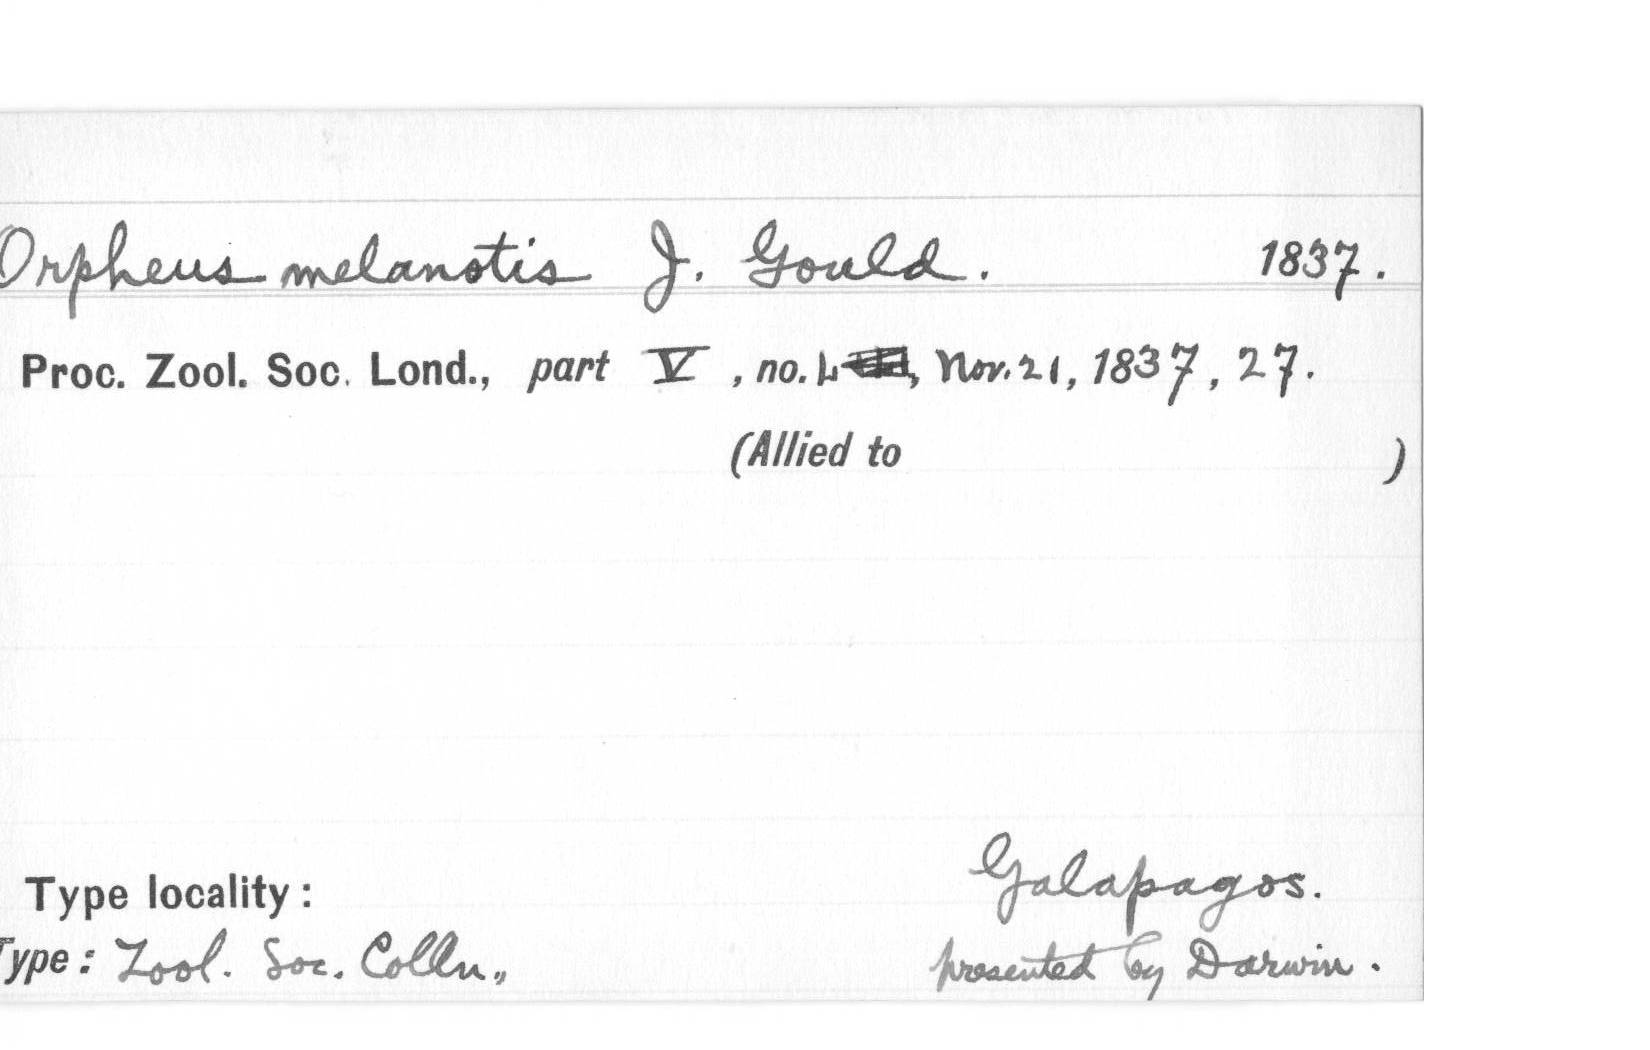 Orpheus melanotis J. Gould. 1837.
Proc. Zool. Soc. Lond., part V, no. L, Nov. 21, 1837, 27.
(Allied to )
Type locality: Galapagos.
Type: Zool. Soc. Colln., presented by Darwin.